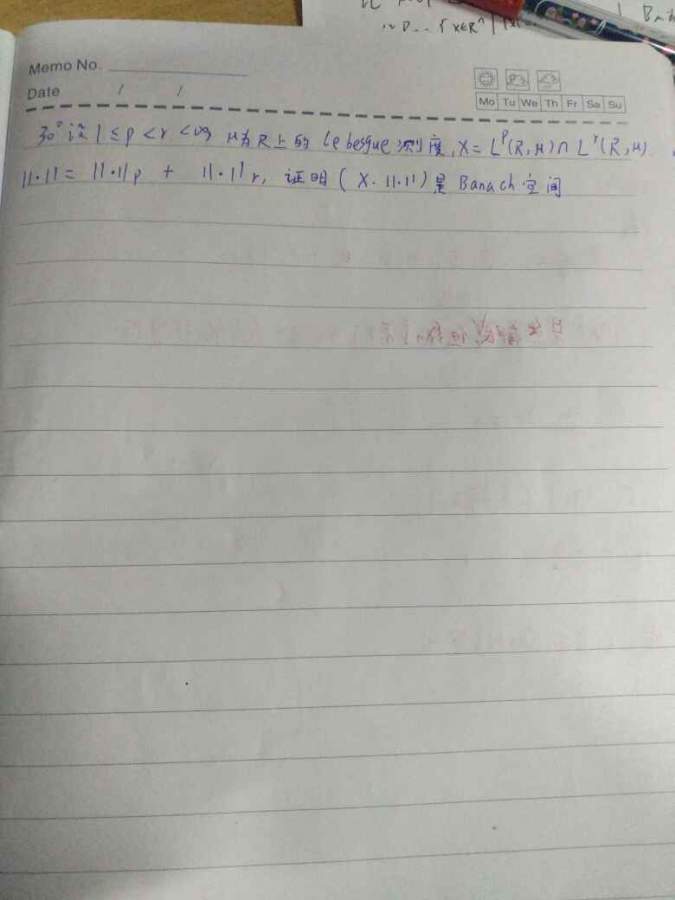 Memo No.
Date / /
Mo Tu We Th Fr Sa Su
30° 设 1 ≤ p < r < ∞ μ为R上的 Lebesgue 测度, X = L^p(R, μ) ∩ L^r(R, μ)
||·|| = ||·||p + ||·||r, 证明 (X. ||·||) 是 Banach 空间